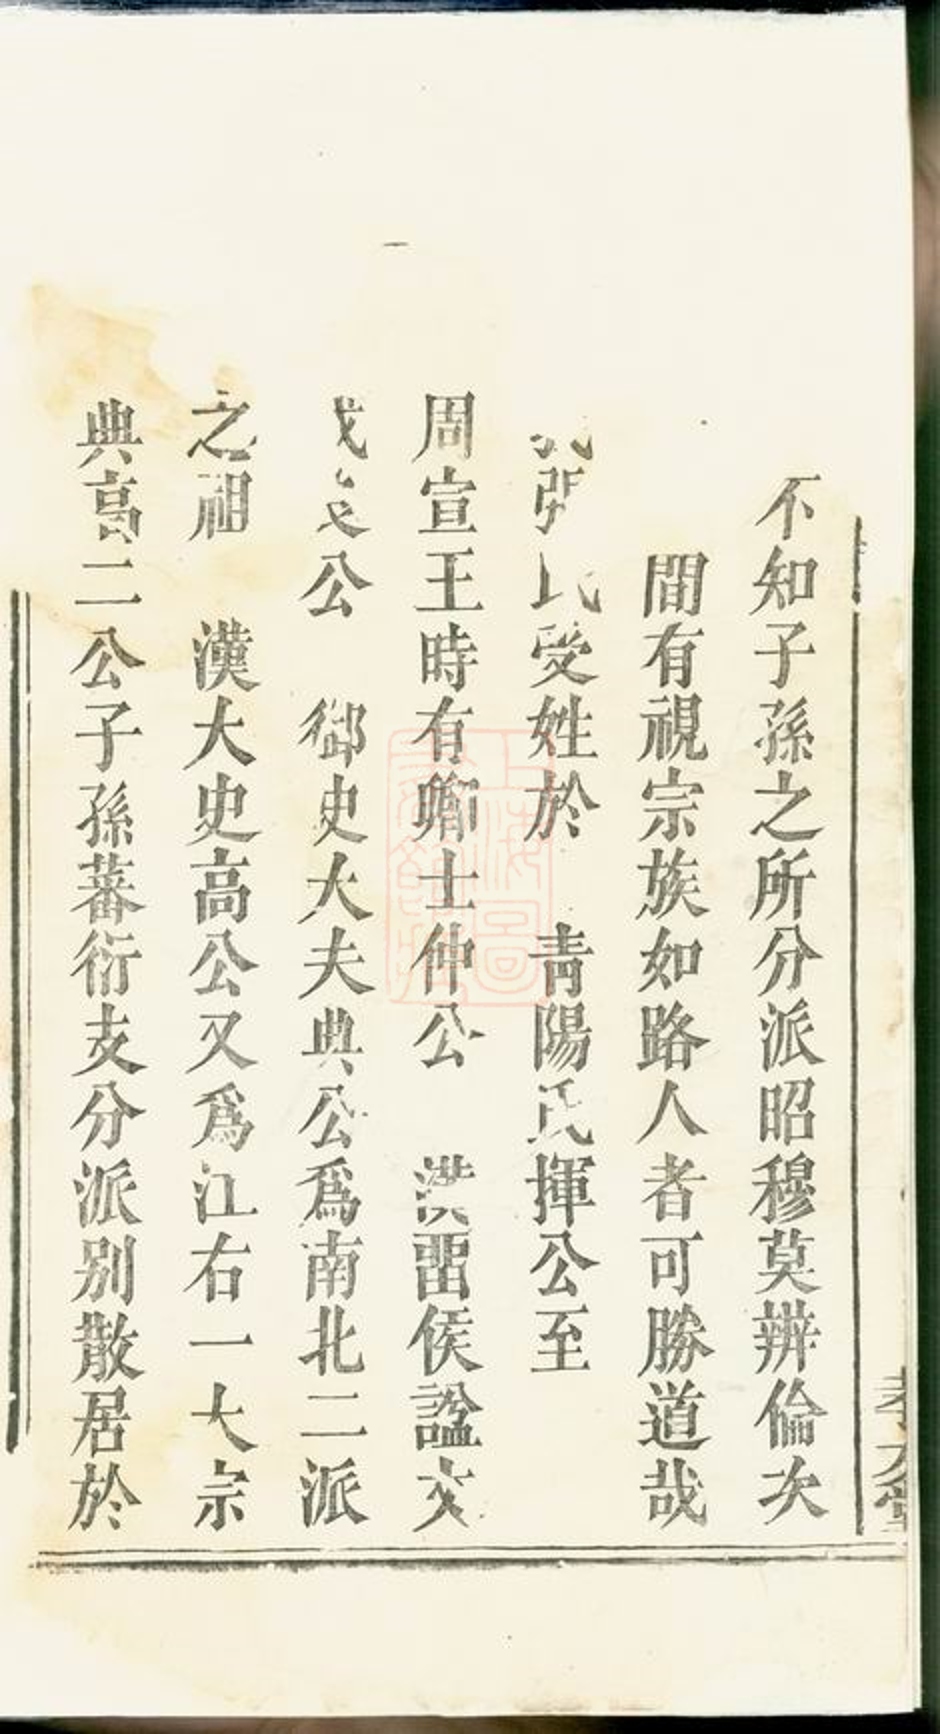 不知子孫之所分派昭穆莫辨倫次
間有視宗族如路人者可勝道哉
張氏受姓於　青陽氏揮公至
周宣王時有卿士仲公　漢畱侯諡文
成良公　御史大夫典公爲南北二派
之祖　漢大史高公又爲江右一大宗
典高二公子孫蕃衍支分派別散居於
孝友堂